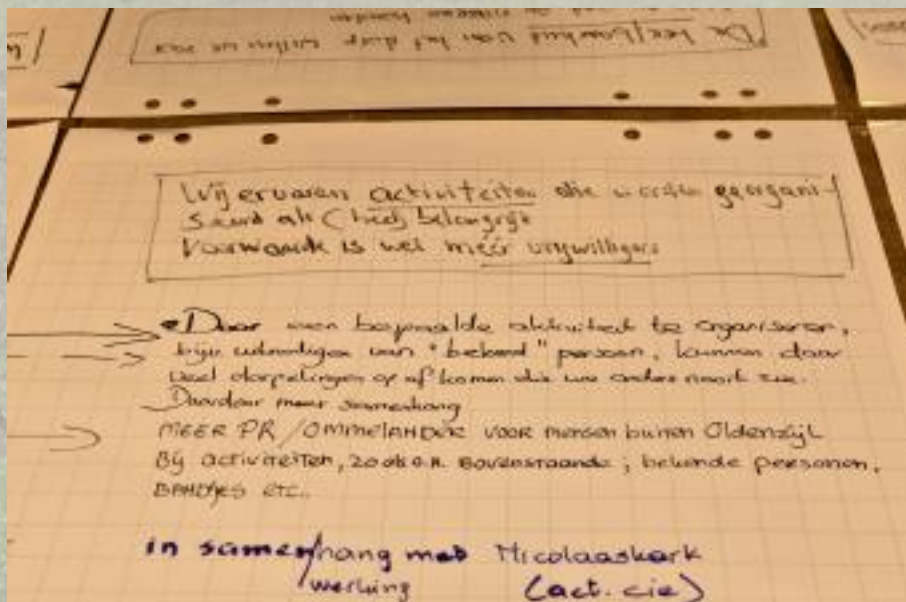 De leefbaarheid van het dorp willen we
Wij ervaren activiteiten die worden georgani-
seerd als (heel) belangrijk
Voorwaarde is wel méér vrijwilligers
Door een bepaalde aktiviteit te organiseren,
bijv uitnodigen van "bekend" persoon, kunnen daar
veel dorpelingen op af komen die we anders nooit zie.
Daardoor meer samenhang
MEER PR / OMMELANDER VOOR mensen buiten Oldenzijl
Bij activiteiten, ZOALS O.A. BOVENSTAANDE; bekende personen,
BANDJES ETC.
in samen/hang met Nicolaaskerk
/werking (act. cie)